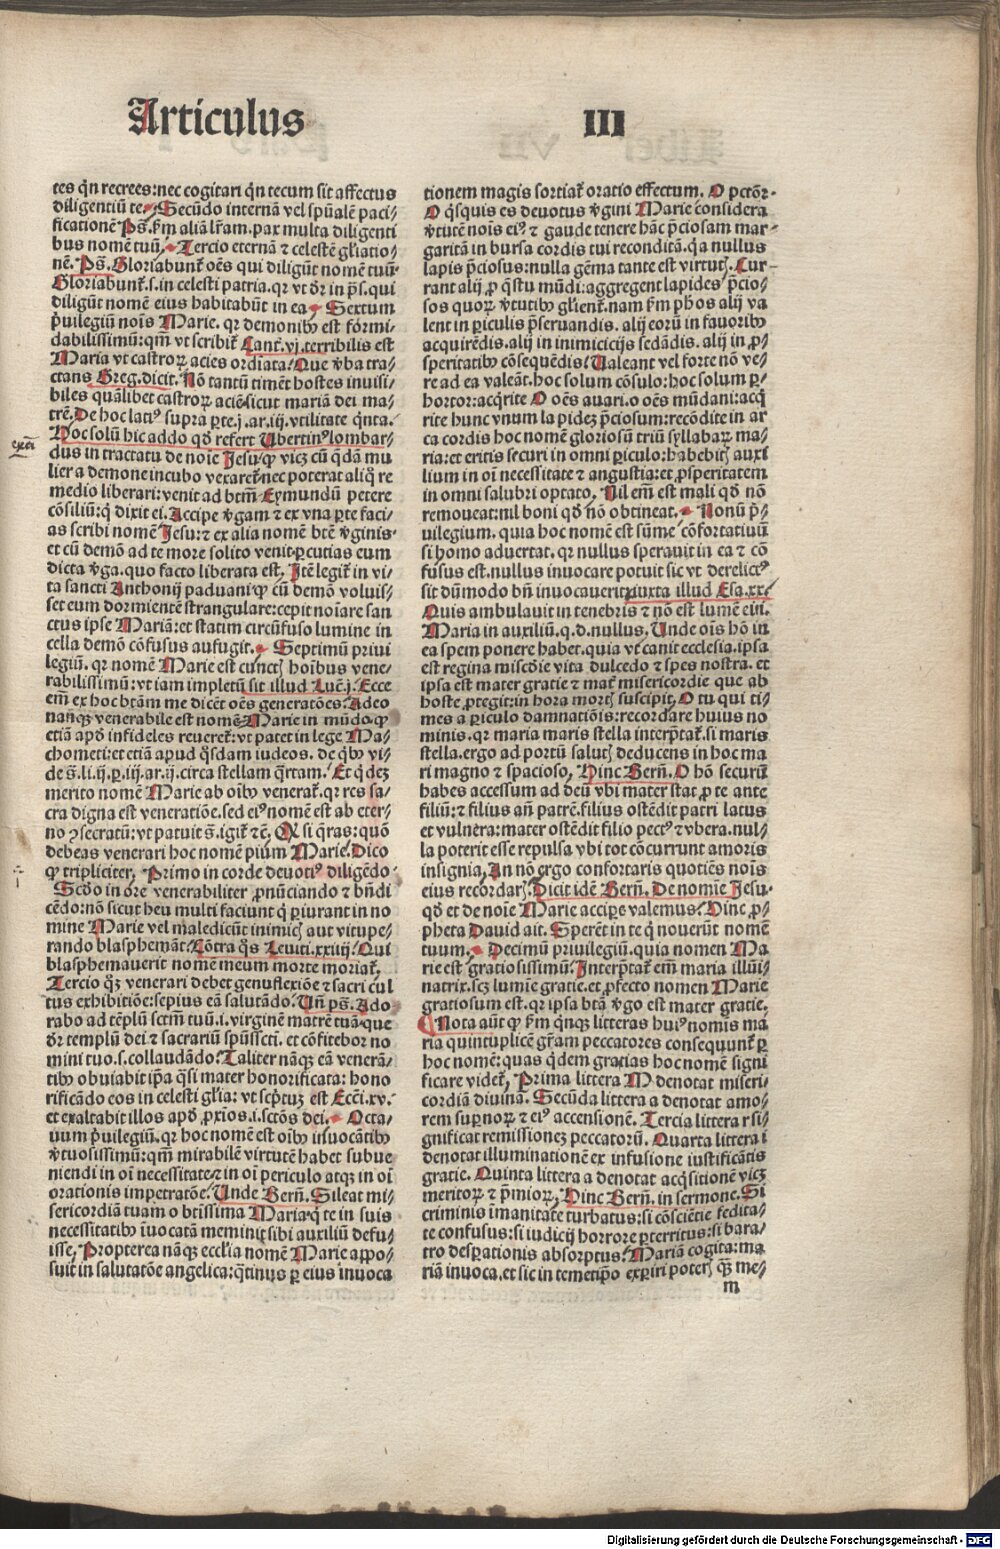 Articulus III
tes qͥn recrees:nec cogitari qͥn tecum sit affectus
diligentiū te. Secūdo internā vel spūalē paci/
ficationē Ps̄. k̄m aliā lr̄am. pax multa diligenti
bus nomē tuū. Tercio eternā ⁊ celestē gl̄iatio/
nē. Ps̄. Gloriabunt̄ oēs qui diligūt nomē tuū.
Gloriabunt̄.s.in celesti patria.qr vt dr̄ in ps̄.qui
diligūt nomē eius habitabūt in ea. Sextum
p̄uilegiū nois̄ Marie. qr demonibꝰ est formi/
dabilissimū:qm̄ vt scribit̄ Cant̄.vj.terribilis est
Maria vt castroꝝ acies ordīata. Que v̄ba tra/
ctans Greg.dicit. Nō tantū timēt hostes inuisi/
biles quālibet castroꝝ aciē.sicut mariā dei ma/
trē. De hoc latiꝰ supra ꝑte.j.ar.iij.vtilitate qͥnta.
Hoc solū hic addo qd̄ refert Ubertinꝰ lombar/
dus in tractatu de noīe Jesu.ꝙ vicꝫ cū qͣdā mu
lier a demone incubo vexaret̄.nec poterat aliqͦ re
medio liberari:venit ad btm̄ Eymundū petere
cōsiliū:qͥ dixit ei. Accipe v̄gam ⁊ ex vna ꝑte faci/
as scribi nomē Jesu:⁊ ex alia nomē btē v̄ginis.
et cū demō ad te more solito venit.ꝑcutias eum
dicta v̄ga.quo facto liberata est. Itē legit̄ in vi/
ta sancti Anthonij paduani.ꝙ cū demō voluis/
set eum dormientē strangulare:cepit noīare san
ctus ipse Mariā:et statim circūfuso lumine in
cella demō cōfusus aufugit. Septimū priui
legiū. qr nomē Marie est cunctꝭ hoībus vene/
rabilissimū:vt iam impletū sit illud Luc̄.j. Ecce
em̄ ex hoc btām me dicēt oēs generatōes. Adeo
nāqꝫ venerabile est nomē Marie in mūdo.ꝙ
etiā apd̄ infideles reueret̄:vt patet in lege Ma/
chometi:et etiā apud qͦsdam iudeos. de qͥbꝰ vi/
de s̄.li.ij.ꝑ.iij.ar.ij.circa stellam qͣrtam. Et qͥdeꝫ
merito nomē Marie ab oībꝰ venerat̄.qr res sa/
cra digna est veneratiōe.sed eiꝰ nomē est ab eter/
no ꝯsecratū:vt patuit s̄.igit̄ ⁊c̄. Qꝛ si qͣras:quō
debeas venerari hoc nomē pium Marie. Dico
ꝙ tripliciter. Primo in corde deuotiꝰ diligēdo.
Scd̄o in ore venerabiliter ꝓnūciando ⁊ bn̄di
cēdo:nō sicut heu multi faciunt qͥ ꝑiurant in no
mine Marie vel maledicūt inimicꝭ aut vitupe/
rando blasphemāt. Cōtra qͦs Leuiti.xxiiij. Qui
blasphemauerit nomē meum morte moriat̄.
Tercio qͦꝫ venerari debet genuflexiōe ⁊ sacri cul
tus exhibitiōe:sepius eā salutādo. Un̄ ps̄. Ado
rabo ad tēplū sctm̄ tuū.i.virginē matrē tuā.que
dr̄ templū dei ⁊ sacrariū spūsscti.et cōfitebor no
mini tuo.s.collaudādo. Taliter nāqꝫ eā venerā/
tibꝰ obuiabit ip̄a qͣsi mater honorificata: hono
rificādo eos in celesti gl̄ia: vt scptuꝫ est Eccī.xv.
et exaltabit illos apd̄ ꝓxios.i.sctōs dei. Octa/
uum p̄uilegiū.qr hoc nomē est oībꝰ iīuocātibꝰ
v̄tuosissimū:qm̄ mirabilē virtutē habet subue
niendi in oī necessitate.⁊ in oī periculo atqꝫ in oī
orationis impetratōe. Unde Bern̄. Sileat mi/
sericordiā tuam o btīssima Maria.qͥ te in suis
necessitatibꝰ īuocatā meminꝭ sibi auxiliū defu/
isse. Propterea nāqꝫ eccl̄ia nomē Marie appo/
suit in salutatōe angelica:qͣtinus ꝑ eius inuoca
exm̄
tionem magis sortiat̄ oratio effectum. O pctōr.
O qͥsquis es deuotus v̄gini Marie considera
v̄tutē nois̄ eiꝰ ⁊ gaude tenere hāc p̄ciosam mar/
garitā in bursa cordis tui reconditā.qͣ nullus
lapis p̄ciosus:nulla gēma tante est virtutꝭ. Cur/
rant alij ꝓ qͥstu mūdi:aggregent lapides p̄cio/
sos quoꝝ v̄tutibꝰ gl̄ient̄.nam k̄m ph̄os alij va
lent in ꝑiculis p̄seruandis. alij eorū in fauoribꝰ
acquirēdis.alij in inimicicijs sedādis. alij in ꝓ/
speritatibꝰ cōsequēdis. Ualeant vel forte nō ve/
re ad ea valeāt.hoc solum cōsulo:hoc solum ꝑ/
hortor:acqͥrite O oēs auari.o oēs mūdani:acqͥ
rite hunc vnum lapidez p̄ciosum:recōdite in ar
ca cordis hoc nomē gloriosū triū syllabaꝝ ma/
ria:et eritis securi in omni ꝑiculo:habebitꝭ auxi
lium in oī necessitate ⁊ angustia:et ꝓsperitatem
in omni salubri optato. Nil em̄ est mali qd̄ nō
remoueat:nil boni qd̄ nō obtineat. Nonū p̄/
uilegium. quia hoc nomē est sūme cōfortatiuū
si homo aduertat. qr nullus sperauit in ea ⁊ cō
fusus est.nullus inuocare potuit sic vt derelictꝰ
sit dūmodo bn̄ inuocauerit.iuxta illud Esa.xx.
Quis ambulauit in tenebris ⁊ nō est lumē ein̄.
Maria in auxiliū.q.d.nullus. Unde ois̄ hō in
ea spem ponere habet.quia vt canit ecclesia.ipsa
est regina miscd̄ie vita dulcedo ⁊ spes nostra. et
ipsa est mater gratie ⁊ mat̄ misericordie que ab
hoste ꝓtegit:in hora mortꝭ suscipit. O tu qui ti/
mes a ꝑiculo damnatiōis:recordare huius no
minis.qr maria maris stella interp̄tat̄.si maris
stella.ergo ad portū salutꝭ deducens in hoc ma
ri magno ⁊ spacioso. Hinc Bern̄. O hō securū
habes accessum ad deū vbi mater stat ꝓ te ante
filiū:⁊ filius an̄ patrē.filius ostēdit patri latus
et vulnera:mater ostēdit filio pectꝰ ⁊ vbera.nul/
la poterit esse repulsa vbi tot cōcurrunt amoris
insignia. An nō ergo confortaris quotiēs nois̄
eius recordarꝭ. Dicit idē Bern̄. De nomīe Jesu.
qd̄ et de noīe Marie acciꝑe valemus. Hinc ꝓ/
pheta Dauid ait. Sperēt in te qͥ nouerūt nomē
tuum. Decimū priuilegiū.quia nomen Ma
rie est gratiosissimū. Interp̄tat̄ em̄ maria illūi/
natrix.scꝫ lumīe gratie.et ꝓfecto nomen Marie
gratiosum est.qr ipsa btā v̄go est mater gratie.
Nota aūt ꝙ k̄m qͥnqꝫ litteras huiꝰ nomis ma
ria quintuplicē gr̄am peccatores consequunt̄ ꝑ
hoc nomē:quas qͥdem gratias hoc nomē signi
ficare videt̄. Prima littera M denotat miseri/
cordiā diuinā. Secūda littera a denotat amo/
rem supnoꝝ ⁊ eiꝰ accensionē. Tercia littera r si/
gnificat remissionez peccatorū. Quarta littera i
denotat illuminationē ex infusione iustificātis
gratie. Quinta littera a denotat acqͥsitionē vicꝫ
meritoꝝ ⁊ p̄mioꝝ. Hinc Bern̄. in sermone. Si
criminis īmanitate turbatus:si cōsciētie fedita/
te confusus:si iudicij horrore ꝑterritus:si bara/
tro desꝑationis absorptus. Mariā cogita:ma
riā inuoca.et sic in temetip̄o exꝑiri poterꝭ qͣꝫ me/
m
Digitalisierung gefördert durch die Deutsche Forschungsgemeinschaft - DFG